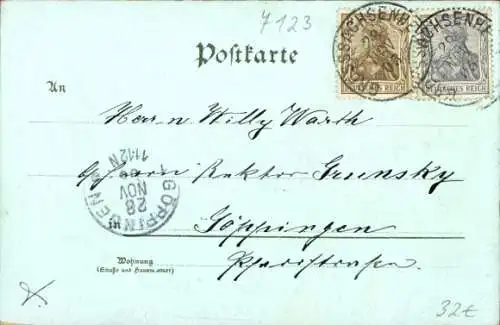 7123
Postkarte
SACHSENH
28
SACHSENH
28
DEUTSCHES REICH
DEUTSCHES REICH
An
Herrn Willy Warth
Herrn Rektor Grunsky
GÖPPINGEN
28
NOV
11-12N
in
Göppingen
Pfarrstraße.
Wohnung
(Straße und Hausnummer)
32€